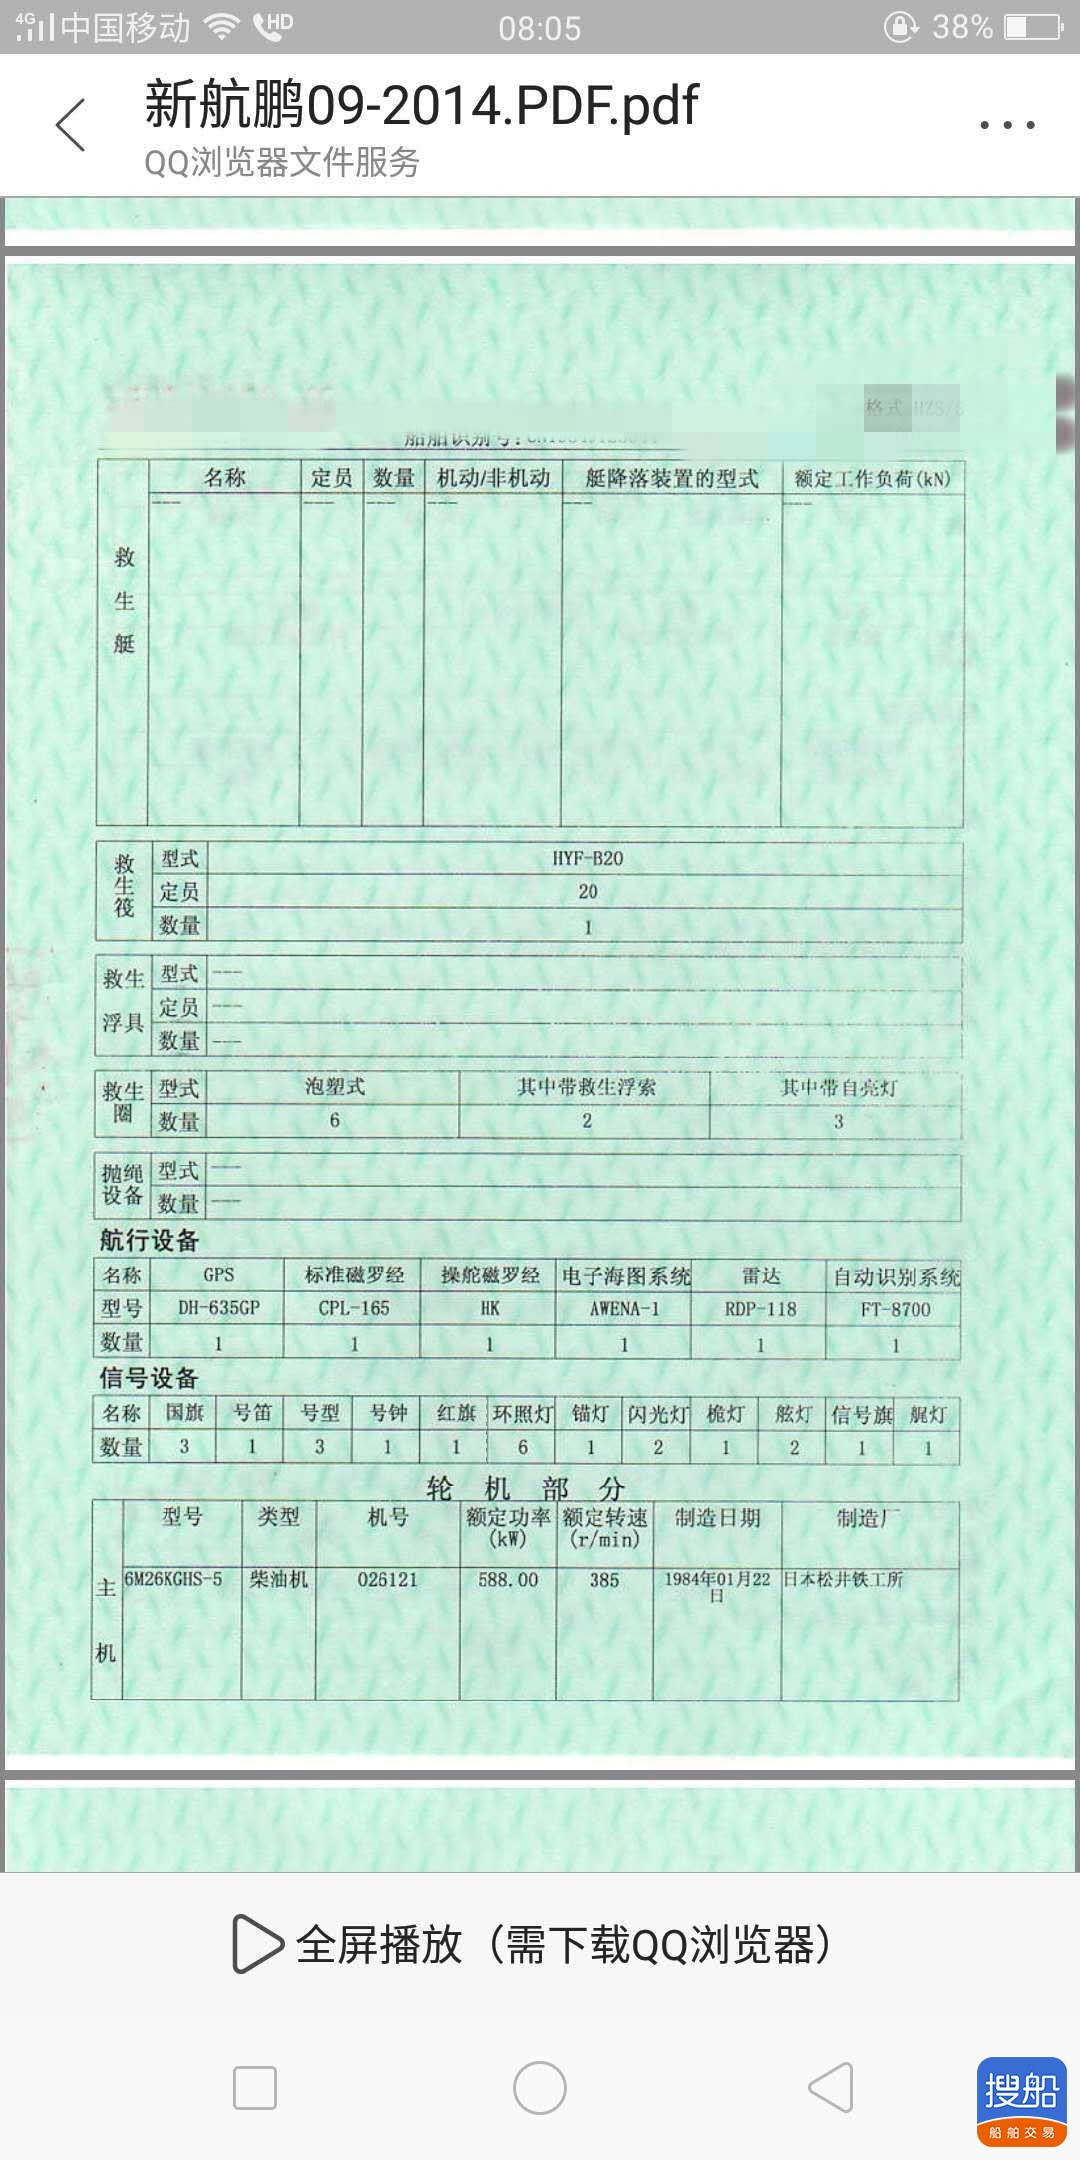 4G 中国移动 HD 08:05 38%
新航鹏09-2014.PDF.pdf
QQ浏览器文件服务
格式
船舶识别号:
名称 定员 数量 机动/非机动 艇降落装置的型式 额定工作负荷(kN)
--- --- --- --- --- ---
救生艇
救生筏 型式 HYF-B20
定员 20
数量 1
救生浮具 型式 ---
定员 ---
数量 ---
救生圈 型式 泡塑式 其中带救生浮索 其中带自亮灯
数量 6 2 3
抛绳设备 型式 ---
数量 ---
航行设备
名称 GPS 标准磁罗经 操舵磁罗经 电子海图系统 雷达 自动识别系统
型号 DH-635GP CPL-165 HK AWENA-1 RDP-118 FT-8700
数量 1 1 1 1 1 1
信号设备
名称 国旗 号笛 号型 号钟 红旗 环照灯 锚灯 闪光灯 桅灯 舷灯 信号旗 艉灯
数量 3 1 3 1 1 6 1 2 1 2 1 1
轮 机 部 分
型号 类型 机号 额定功率(kW) 额定转速(r/min) 制造日期 制造厂
主机 6M26KGHS-5 柴油机 026121 588.00 385 1984年01月22日 日本松井铁工所
全屏播放（需下载QQ浏览器）
搜船
船舶交易